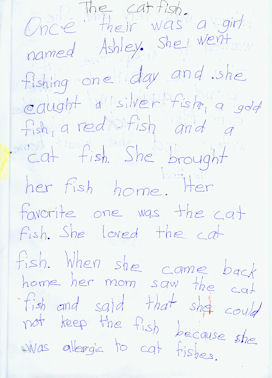 The cat fish.
Once their was a girl
named Ashley. She went
fishing one day and she
caught a silver fish, a gold
fish, a red fish and a
cat fish. She brought
her fish home. Her
favorite one was the cat
fish. She loved the cat
fish. When she came back
home her mom saw the cat
fish and said that she could
not keep the fish because she
was allergic to cat fishes.